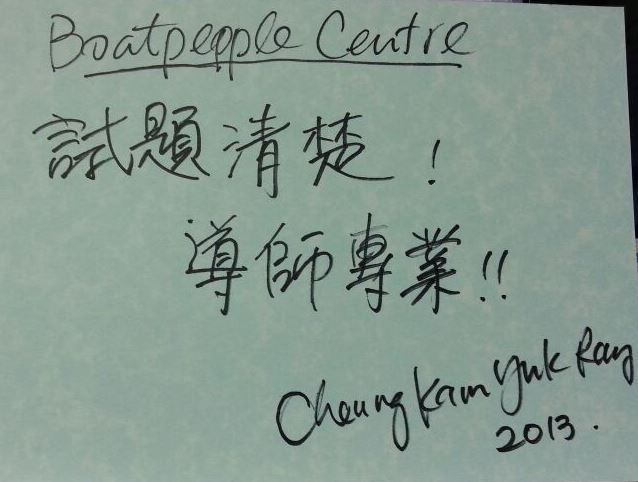 Boatpepple Centre
試題清楚！
導師專業!!
Cheung Kam Yuk Ray
2013.